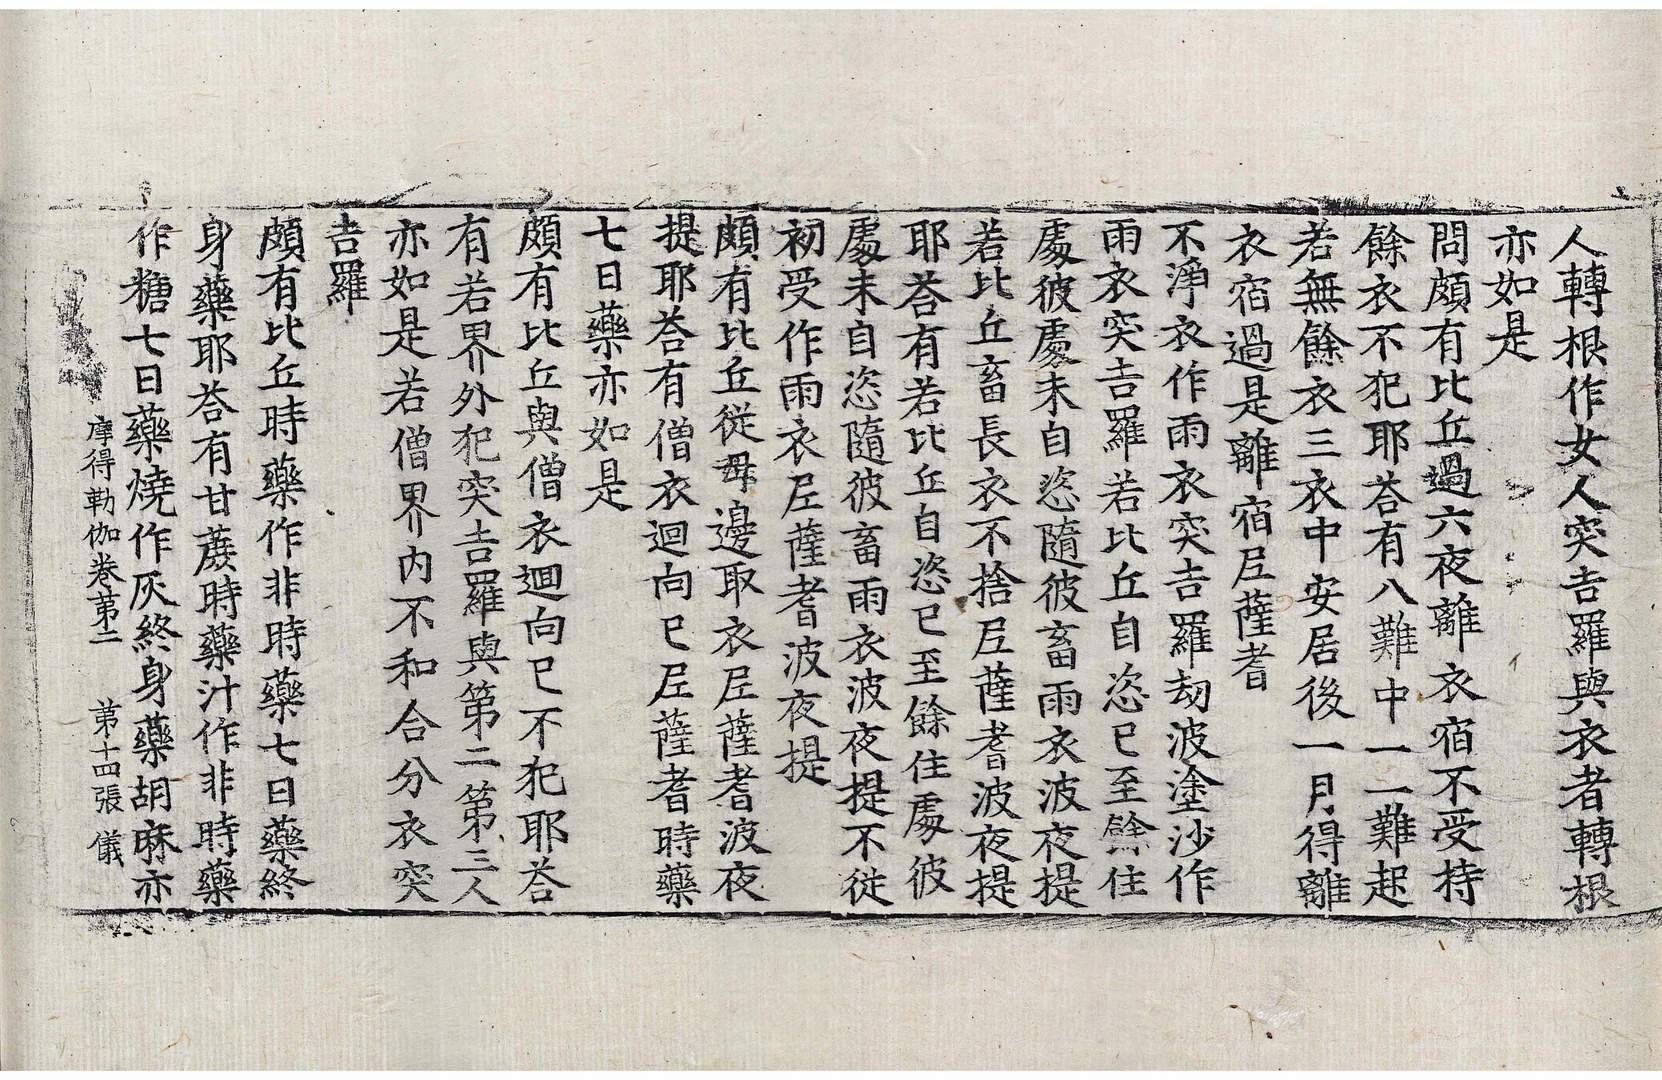 人轉根作女人突吉羅與衣者轉根
亦如是
問頗有比丘過六夜離衣宿不受持
餘衣不犯耶荅有八難中一一難起
若無餘衣三衣中安居後一月得離
衣宿過是離宿尼薩耆
不淨衣作雨衣突吉羅劫波塗沙作
雨衣突吉羅若比丘自恣已至餘住
處彼處未自恣隨彼畜雨衣波夜提
若比丘畜長衣不捨尼薩耆波夜提
耶荅有若比丘自恣已至餘住處彼
處未自恣隨彼畜雨衣波夜提不從
初受作雨衣尼薩耆波夜提
頗有比丘從母邊取衣尼薩耆波夜
提耶荅有僧衣迴向已尼薩耆時藥
七日藥亦如是
頗有比丘與僧衣迴向已不犯耶荅
有若界外犯突吉羅與第二第三人
亦如是若僧界內不和合分衣突
吉羅
頗有比丘時藥作非時藥七日藥終
身藥耶荅有甘蔗時藥汁作非時藥
作糖七日藥燒作灰終身藥胡麻亦
摩得勒伽卷第二 第十四張 儀